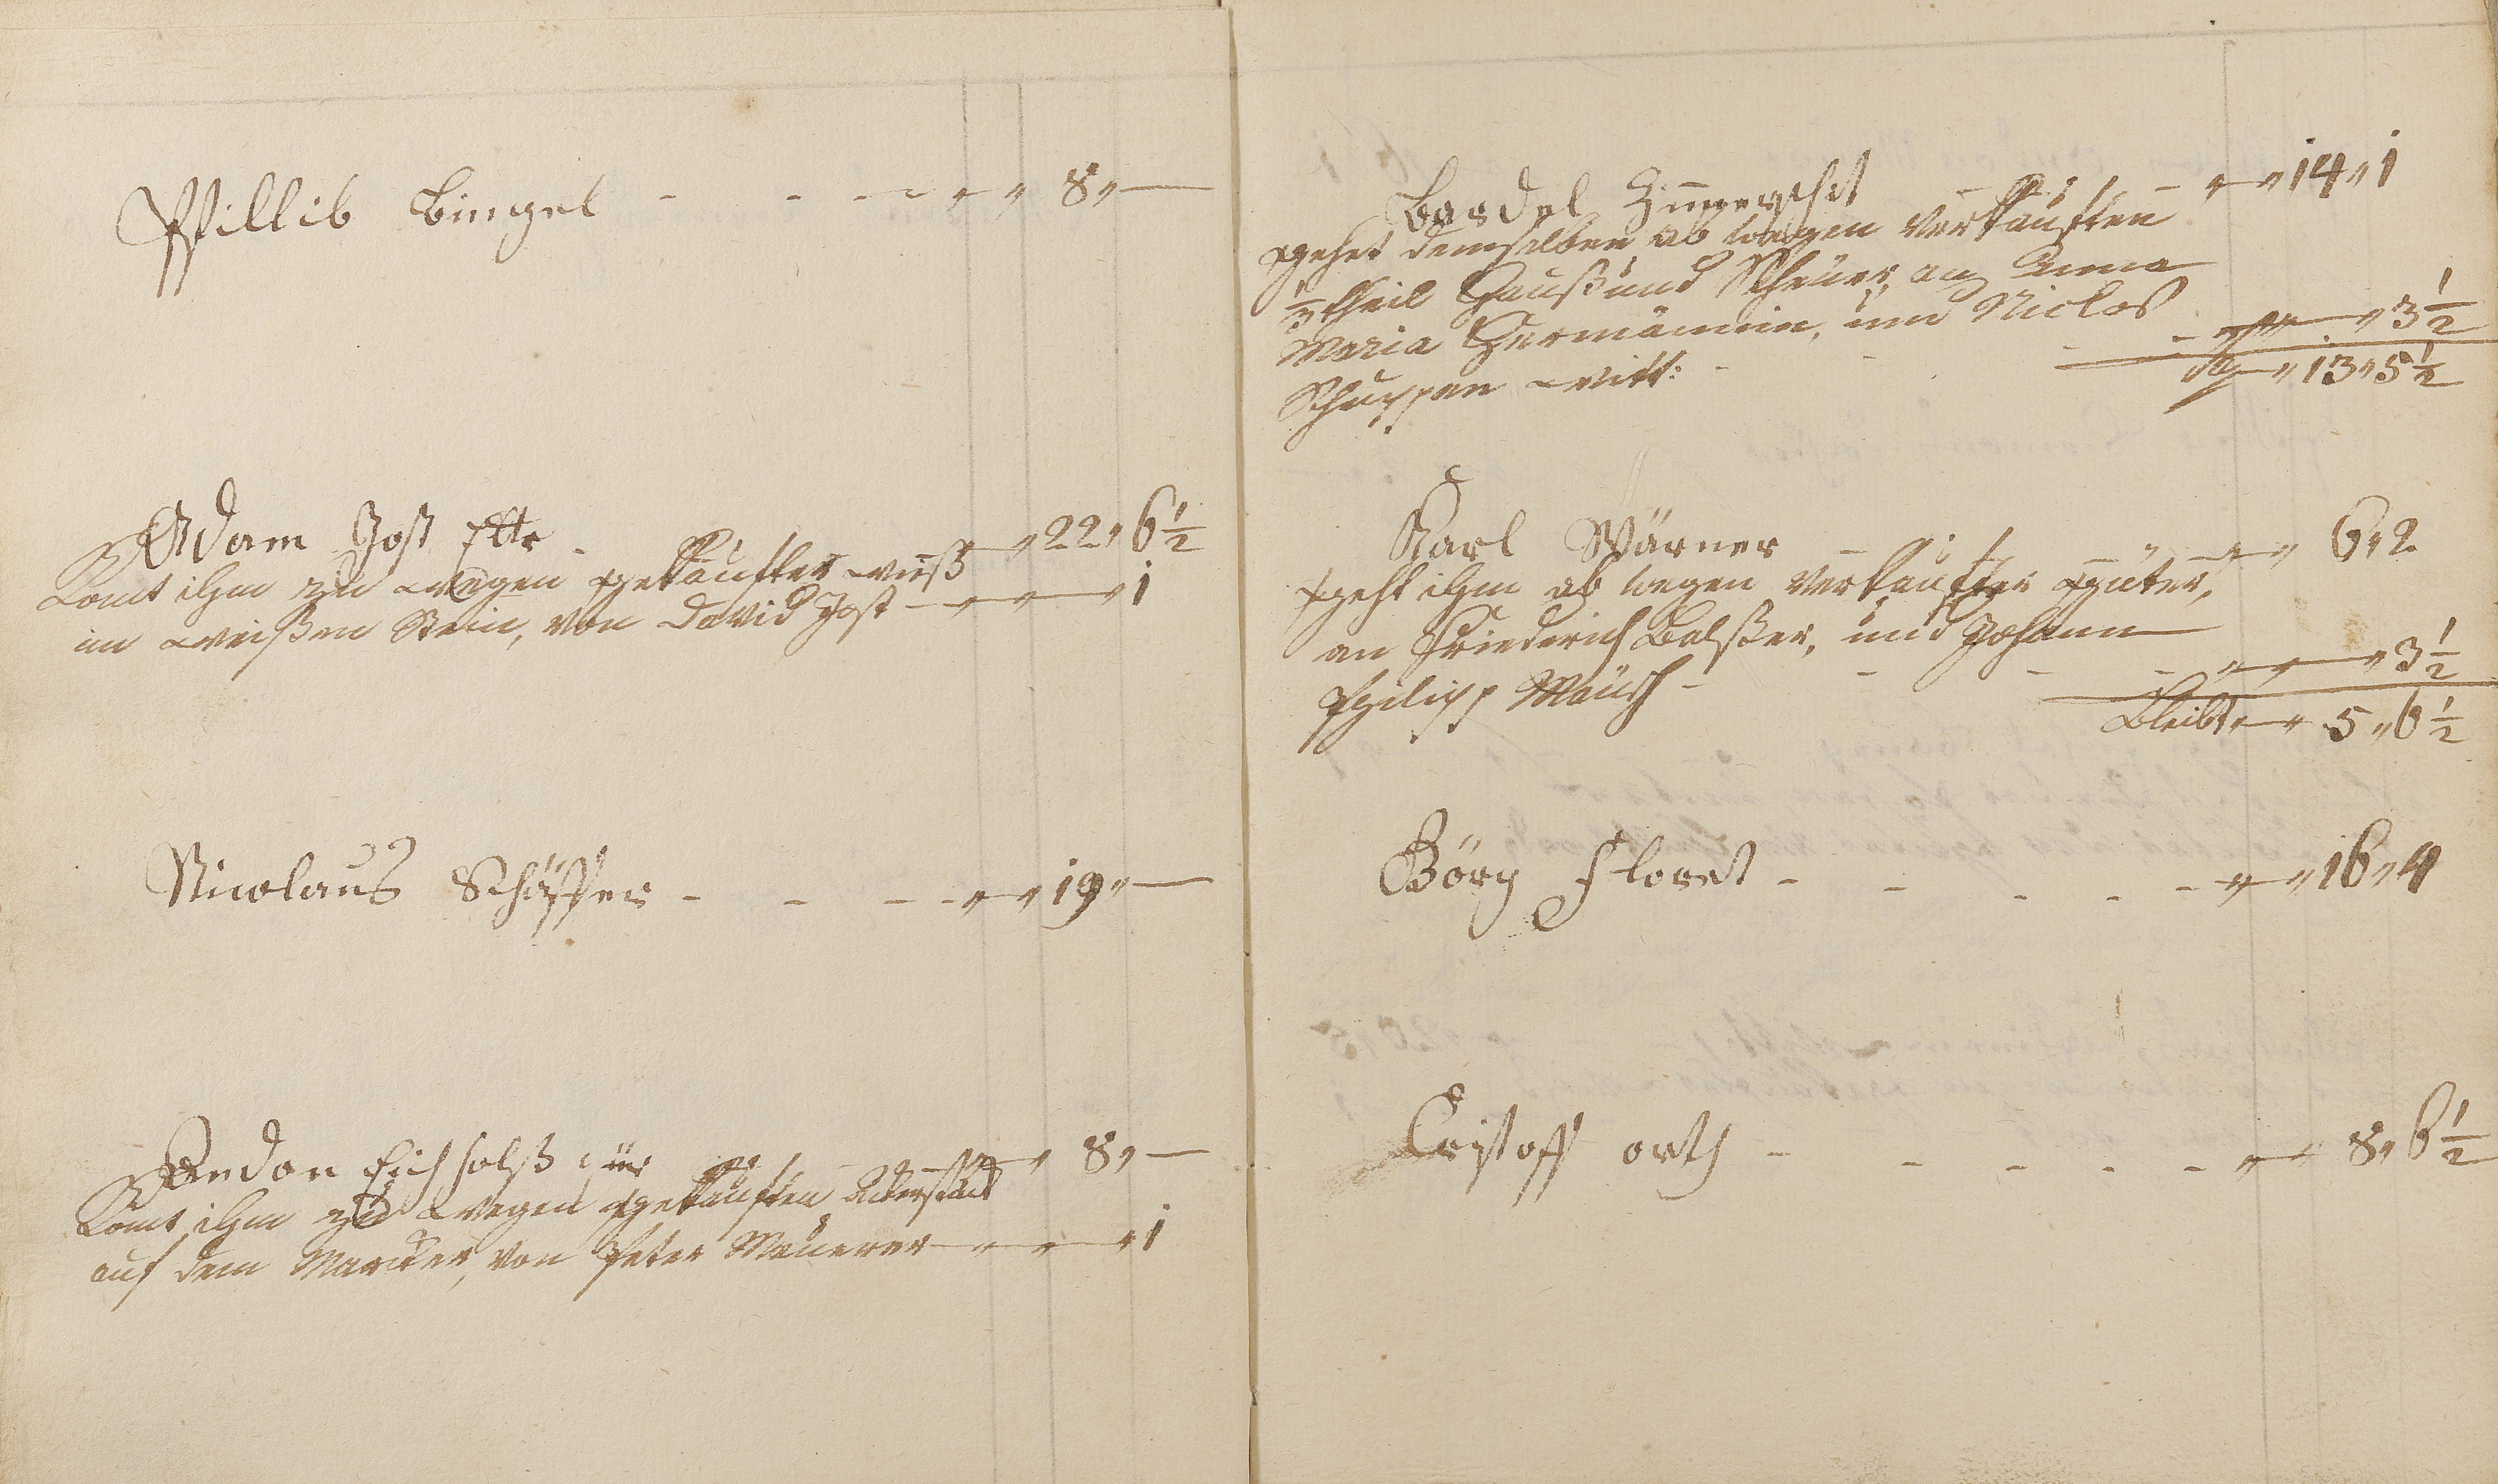 Pfillib Bingel - - - " " 8 " —
Adam Jost Eltr - " " 22 " 6 1/2
Komt ihm zu wegen gekaufter wiß
im weißen Stein, von David Jost — " — " — " 1
Nicolaus Schäffer - - - - " " 19 " —
Andon Eichholß jür " " 8 " —
Komt ihm zu wegen gekauften Ackerstück
auf dem Marcker, von Peter Meuerer — " — " — " 1
Bardel Zimerschit - - " " 14 " 1
gehet demselben ab wegen Verkauften
1/3 theil Hauß und Scheuer, an Anna
Maria Hermännin, und Niclos
Schuppen Witt: - - - - " — " 3 1/2
" 13 " 5 1/2
Karl Wärner - - " " 6 " 2
geht ihm ab wegen Verkaufter Güter,
an Friederich Balßer, und Johann
Philipp Mäusch - - - - " " — " 3 1/2
Bleibt " — " 5 " 6 1/2
Görg Floret - - - - - " " 16 " 4
Cristoff orth - - - - - " " 8 " 6 1/2